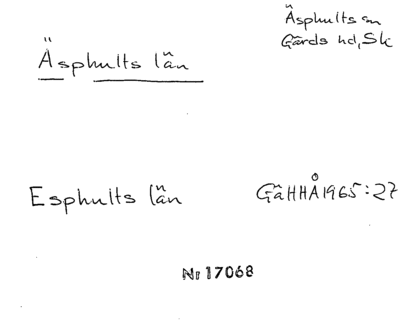 Äsphults län
Äsphults sn
Gärds hd, Sk
Esphults län
GäHHÅ 1965:27
Nr 17068